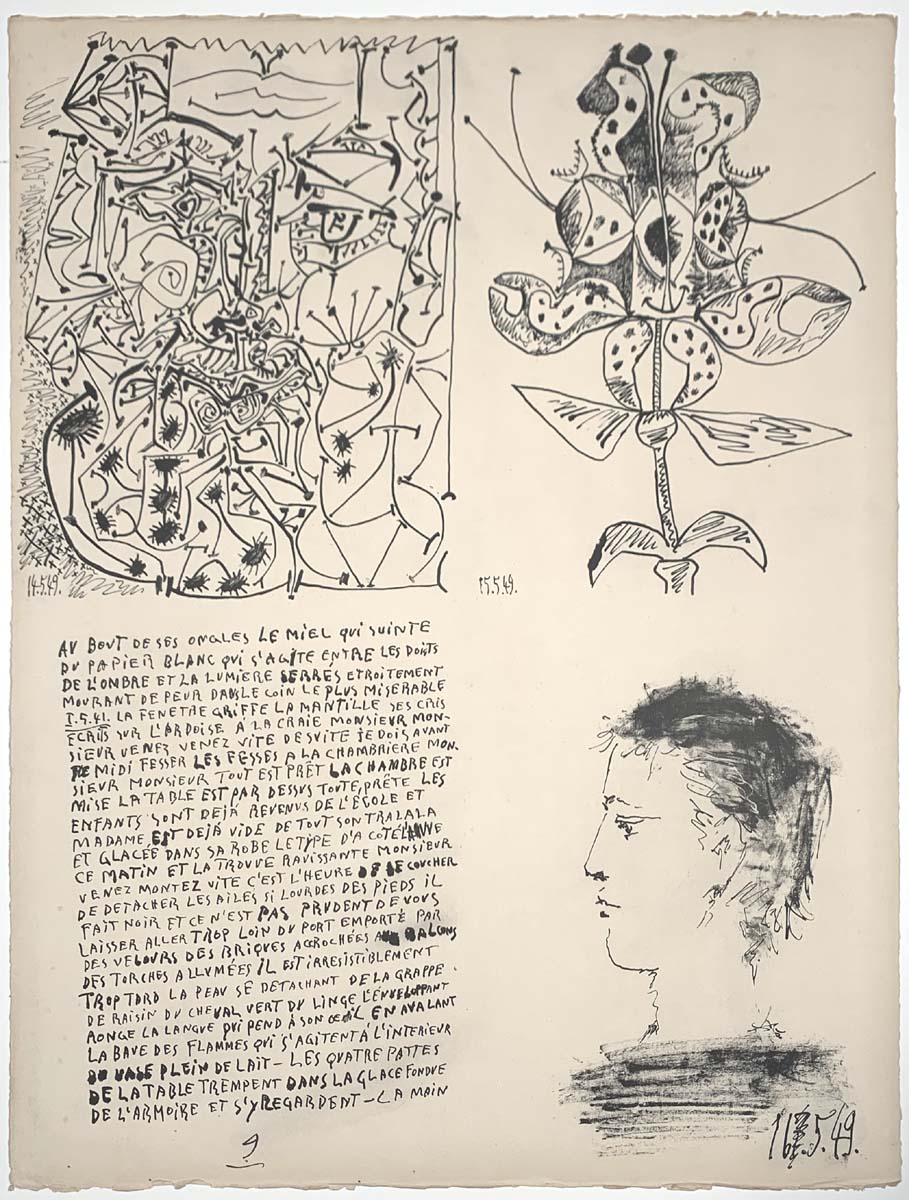 14.5.49.
15.5.49.
AU BOUT DE SES ONGLES LE MIEL QUI SUINTE
DU PAPIER BLANC QUI S'AGITE ENTRE LES DOITS
DE L'OMBRE ET LA LUMIERE SERRES ETROITEMENT
MOURANT DE PEUR DANS LE COIN LE PLUS MISERABLE
I.5.41. LA FENETRE GRIFFE LA MANTILLE SES CRIS
ECRITS SUR L'ARDOISE A LA CRAIE MONSIEUR MON-
SIEUR VENEZ VENEZ VITE DE SUITE JE DOIS AVANT
MIDI FESSER LES FESSES A LA CHAMBRIERE MON-
SIEUR MONSIEUR TOUT EST PRÊT LA CHAMBRE EST
MISE LA TABLE EST PAR DESSUS TOUTE PRÊTE LES
ENFANTS SONT DEJÀ REVENUS DE L'ÉCOLE ET
MADAME EST DEJÀ VIDE DE TOUT SON TRALALA
ET GLACÉE DANS SA ROBE LE TYPE D'A COTÉ
CE MATIN ET LA TROUVE RAVISSANTE MONSIEUR
VENEZ MONTEZ VITE C'EST L'HEURE DE SE COUCHER
DE DETACHER LES AILES SI LOURDES DES PIEDS IL
FAIT NOIR ET CE N'EST PAS PRUDENT DE VOUS
LAISSER ALLER TROP LOIN DU PORT EMPORTÉ PAR
DES VELOURS DES BRIQUES ACCROCHÉES AUX BALCONS
DES TORCHES ALLUMÉES IL EST IRRESISTIBLEMENT
TROP TARD LA PEAU SE DETACHANT DE LA GRAPPE
DE RAISIN DU CHEVAL VERT DU LINGE L'ENVELOPPANT
RONGE LA LANGUE QUI PEND À SON OEIL EN AVALANT
LA BAVE DES FLAMMES QUI S'AGITENT À L'INTERIEUR
DU VASE PLEIN DE LAIT – LES QUATRE PATTES
DE LA TABLE TREMPENT DANS LA GLACE FONDUE
DE L'ARMOIRE ET S'Y REGARDENT – LA MAIN
9
16.5.49.